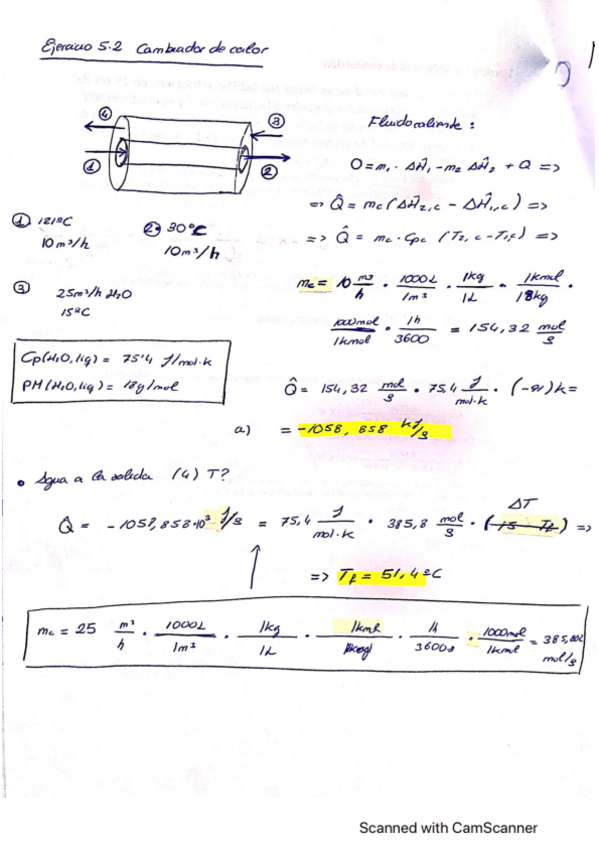 Ejercicio 5.2 Cambiador de calor
④
③
①
②
Fluido caliente:
0 = m₁ · ΔĤ₁ - m₂ ΔĤ₂ + Q =>
=> Q̂ = mc (ΔĤ2,c - ΔĤ1,c) =>
=> Q̂ = mc · Cpc (T2,c - T1,c) =>
① 121ºC
10 m³/h
②• 30ºC
10 m³/h
③ 25 m³/h H₂O
15ºC
mc = 10 m³/h · 1000L/1m³ · 1kg/1L · 1kmol/18kg ·
1000mol/1kmol · 1h/3600 = 154,32 mol/s
Cp(H₂O, liq) = 75'4 J/mol·K
PM (H₂O, liq) = 18 g/mol
Q̂ = 154,32 mol/s · 75,4 J/mol·K · (-91) K =
a) = -1058,858 kJ/s
• Agua a la salida (4) T?
ΔT
Q̂ = -1058,858·10³ J/s = 75,4 J/mol·K · 385,8 mol/s · (15 - Tf) =>
=> Tf = 51,4ºC
mc = 25 m³/h · 1000L/1m³ · 1kg/1L · 1kmol/18kg · 1h/3600s · 1000mol/1kmol = 385,802 mol/s
Scanned with CamScanner